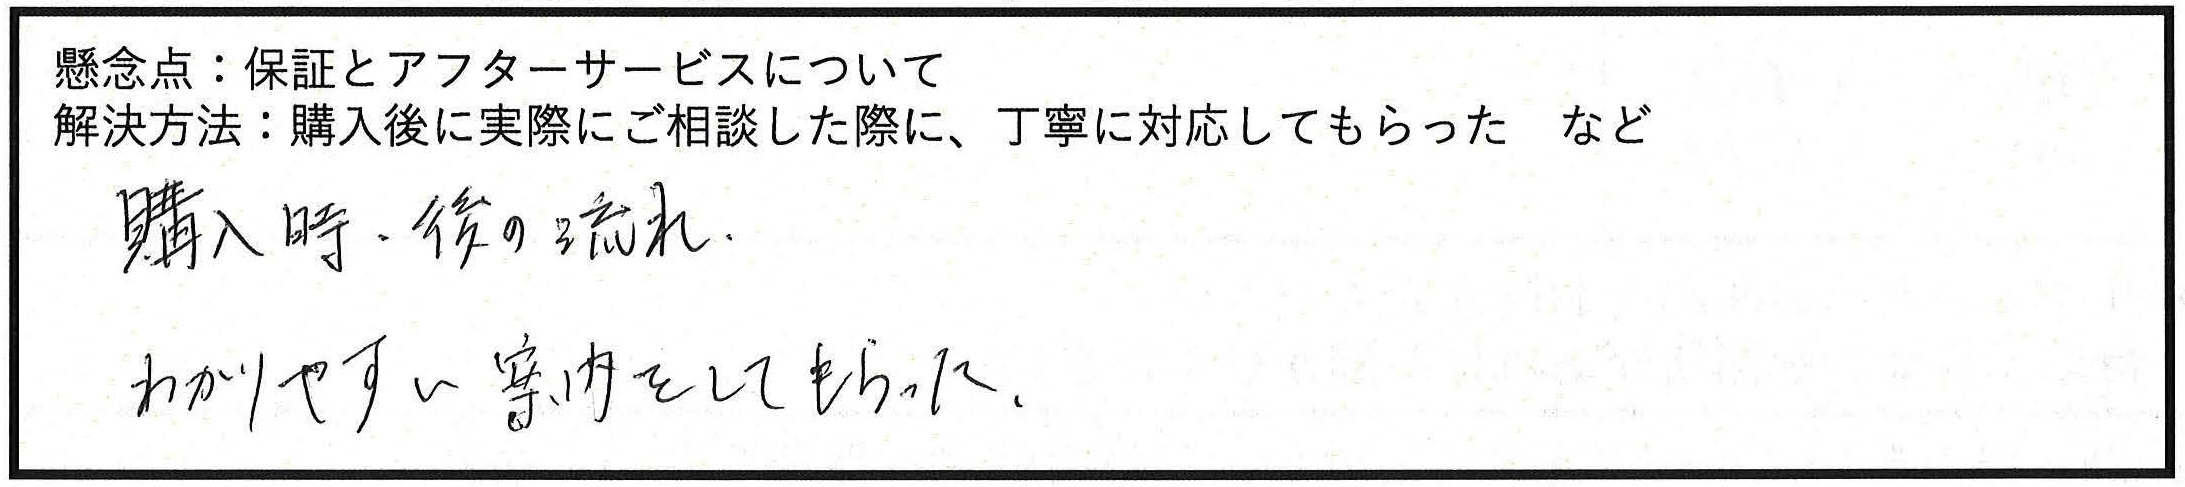 懸念点：保証とアフターサービスについて
解決方法：購入後に実際にご相談した際に、丁寧に対応してもらった　など
購入時・後の流れ.
わかりやすい案内をしてもらった.